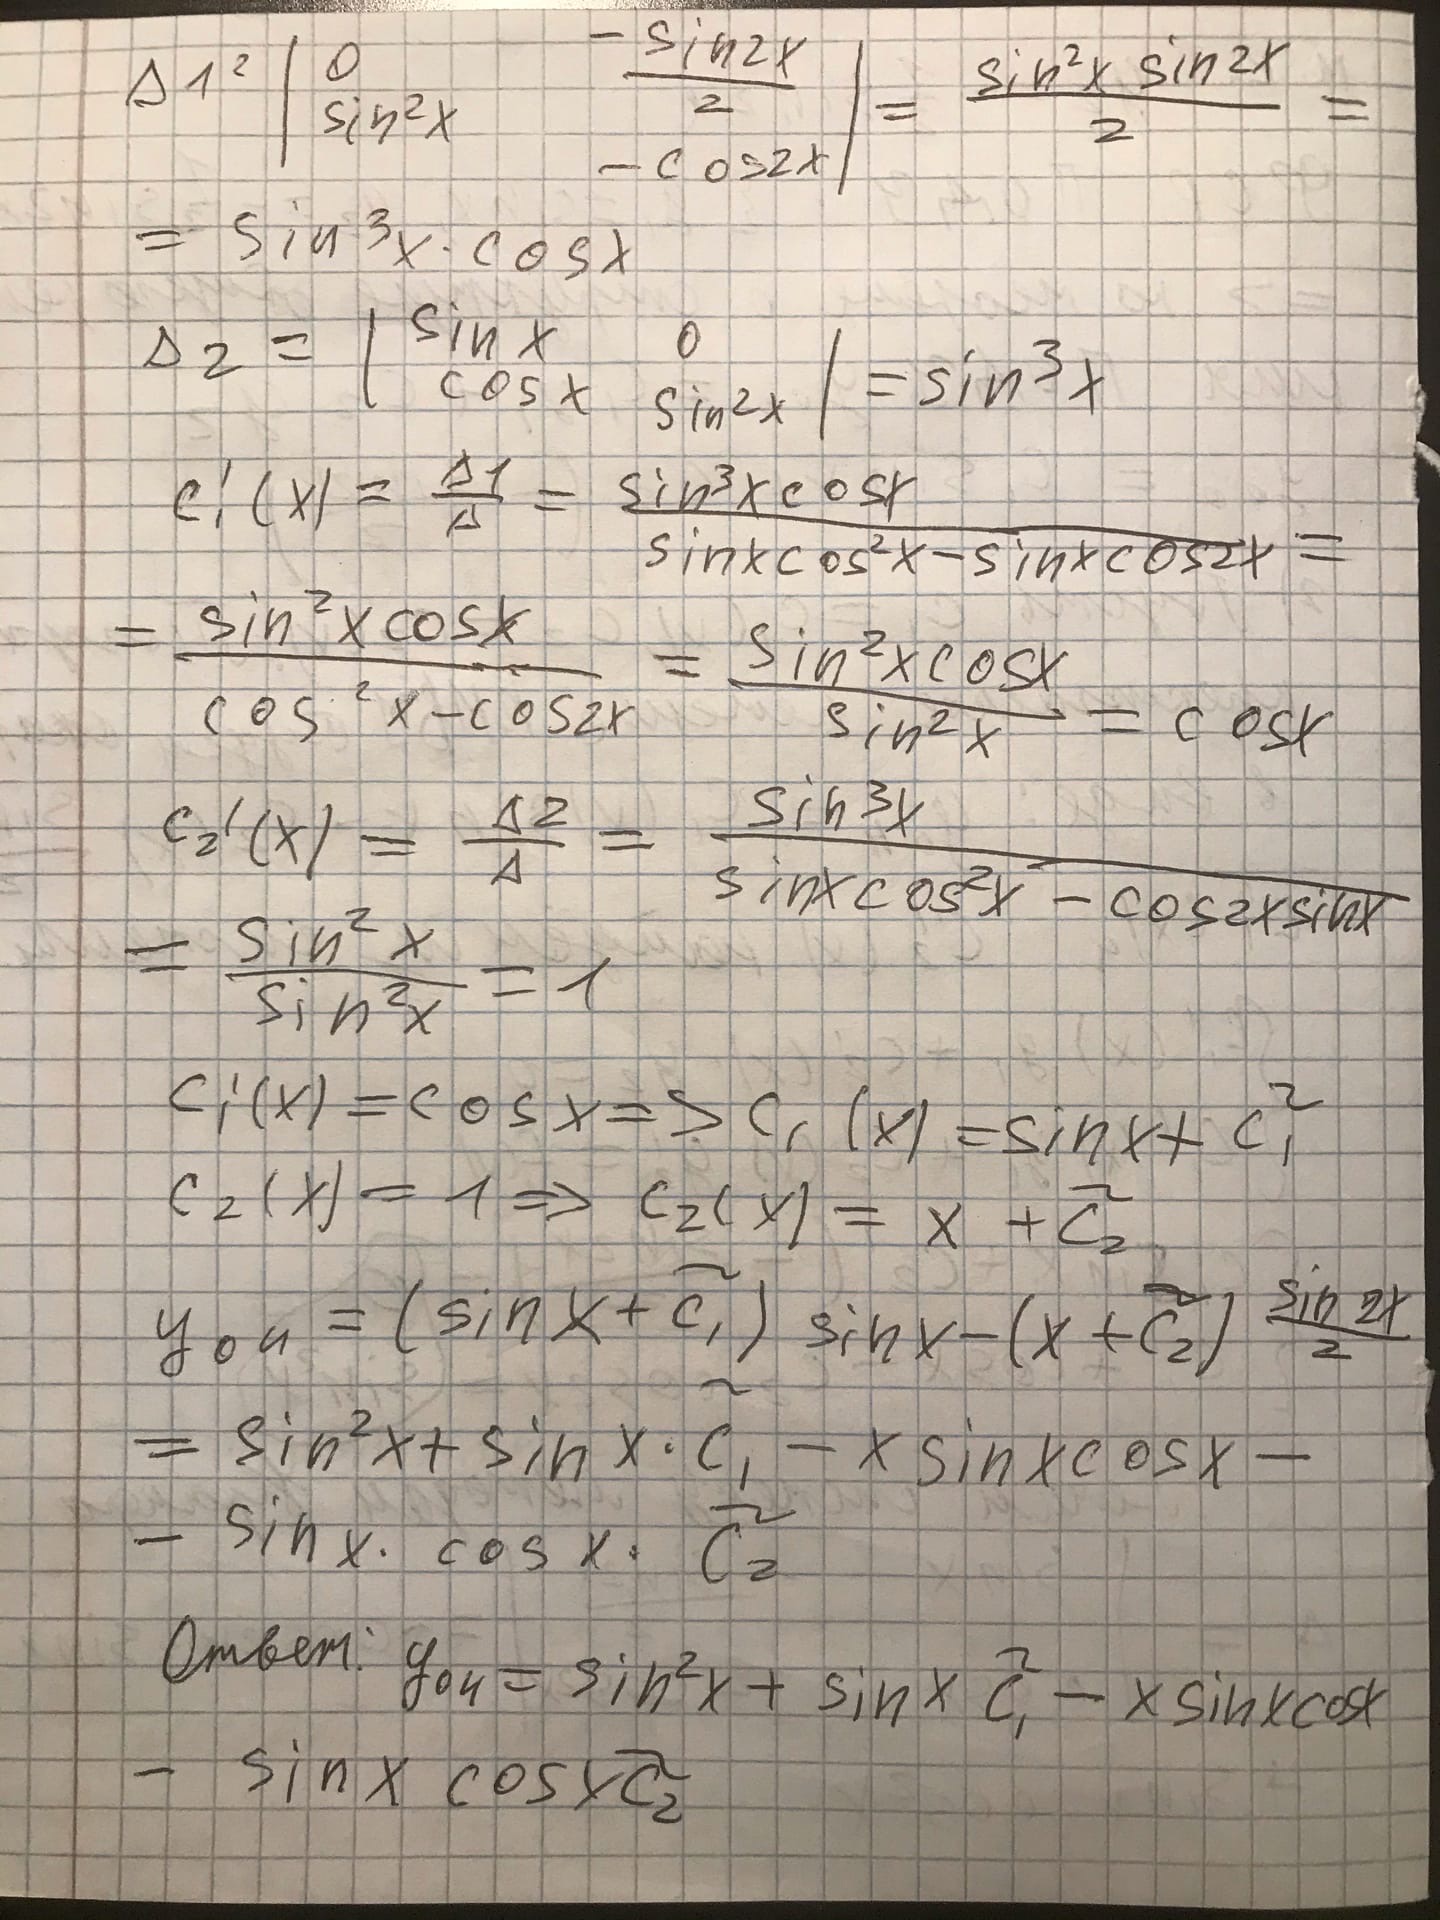 Δ1 = | 0 -sin2x/2 ; sin²x -cos2x | = sin²x sin2x/2 =
= sin³x·cosx
Δ2 = | sinx 0 ; cosx sin²x | = sin³x
c₁'(x) = Δ1/Δ = sin³xcosx/(sinxcos²x-sinxcos2x) =
= sin²xcosx/(cos²x-cos2x) = sin²xcosx/sin²x = cosx
c₂'(x) = Δ2/Δ = sin³x/(sinxcos²x-cos2xsinx)
= sin²x/sin²x = 1
c₁'(x) = cosx => c₁(x) = sinx + c̃₁
c₂(x) = 1 => c₂(x) = x + c̃₂
yон = (sinx + c̃₁) sinx - (x + c̃₂) sin2x/2
= sin²x + sinx·c̃₁ - xsinxcosx -
- sinx·cosx·c̃₂
Ответ: yон = sin²x + sinx c̃₁ - xsinxcosx
- sinx cosxc̃₂